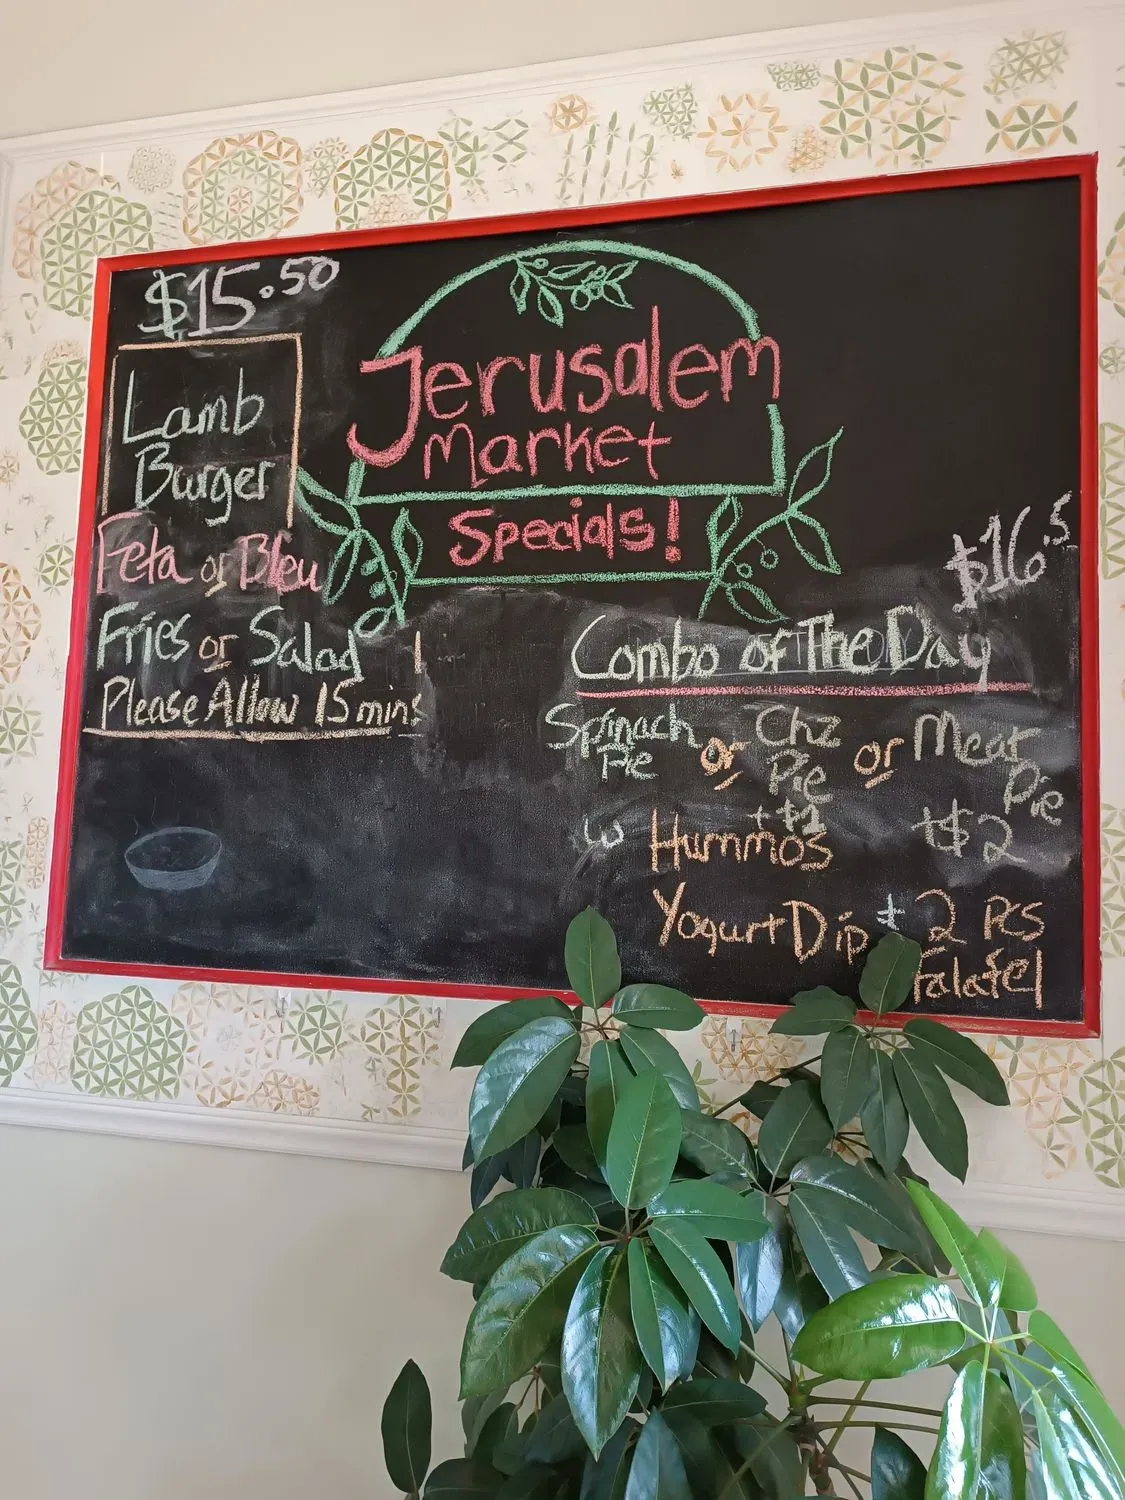 $15.50
Lamb
Burger
Feta or Bleu
Fries or Salad
Please Allow 15 mins
Jerusalem
Market
Specials!
$16.5
Combo of The Day
Spinach Pie or Chz Pie +$1 or Meat Pie +$2
w Hummos
Yogurt Dip + 2 PCS
Falafel